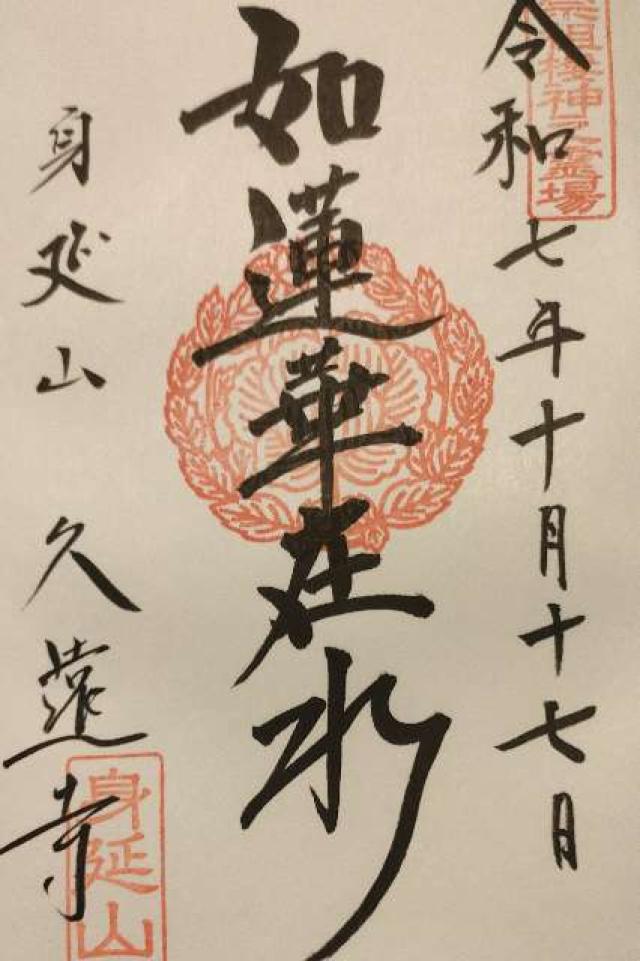 宗祖棲神之霊場
令和七年十月十七日
如蓮華在水
身延山 久遠寺
身延山